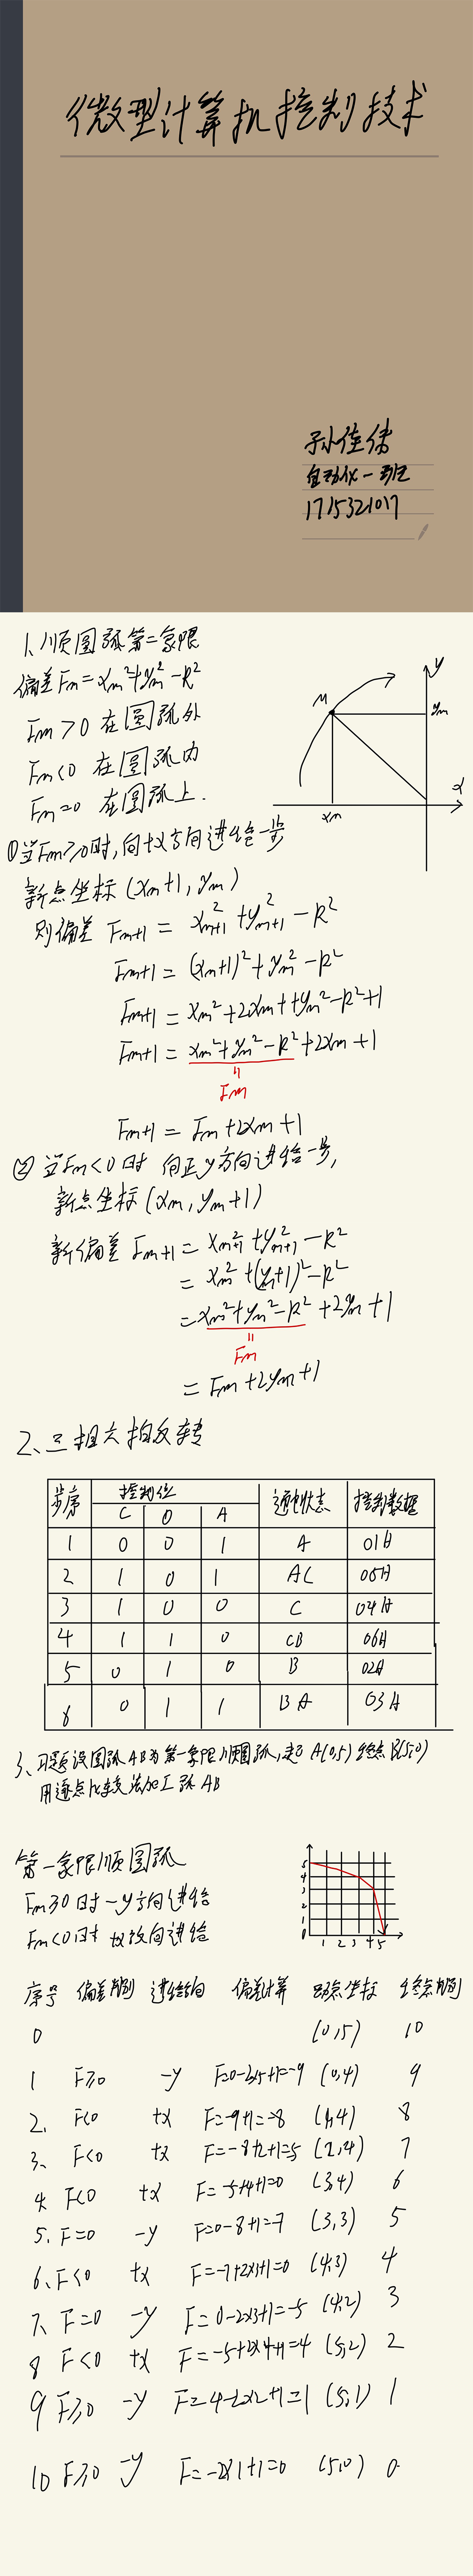 《微型计算机控制技术
孙佳伟
自动化一班
1715321017
1、顺圆弧第二象限
偏差Fm=xm²+ym²-R²
Fm>0 在圆弧外
Fm<0 在圆弧内
Fm=0 在圆弧上.
y
M
ym
x
xm
①当Fm≥0时,向+x方向进给一步
新点坐标(xm+1, ym)
则偏差 Fm+1 = x²m+1+y²m+1-R²
Fm+1=(xm+1)²+ym²-R²
Fm+1=xm²+2xm++ym²-R²+1
Fm+1=xm²+ym²-R²+2xm+1
=
Fm
Fm+1=Fm+2xm+1
②当Fm<0时 向正y方向进给一步,
新点坐标(xm, ym+1)
新偏差 Fm+1=x²m+1+y²m+1-R²
=xm²+(ym+1)²-R²
=xm²+ym²-R²+2ym+1
=
Fm
=Fm+2ym+1
2、三相六拍反转
步序 控制位 通电状态 控制数据
C B A
1 0 0 1 A 01H
2 1 0 1 AC 05H
3 1 0 0 C 04H
4 1 1 0 CB 06H
5 0 1 0 B 02H
6 0 1 1 BA 03H
3、习题 设圆弧AB为第一象限顺圆弧,起点A(0,5)终点B(5,0)
用逐点比较法加工弧AB
第一象限顺圆弧
Fm≥0时-y方向进给
Fm<0时+x方向进给
5
4
3
2
1
0 1 2 3 4 5
序号 偏差判别 进给方向 偏差计算 动点坐标 终点判别
0 (0,5) 10
1 F≥0 -y F=0-2x5+1=-9 (0,4) 9
2. F<0 +x F=-9+1=-8 (1,4) 8
3、 F<0 +x F=-8+2+1=5 (2,4) 7
4. F<0 +x F=-5+4+1=0 (3,4) 6
5. F=0 -y F=0-8+1=-7 (3,3) 5
6、F<0 +x F=-7+2x3+1=0 (4,3) 4
7、F=0 -y F=0-2x3+1=-5 (4,2) 3
8 F<0 +x F=-5+2x4+1=4 (5,2) 2
9 F≥0 -y F=4-2x2+1=1 (5,1) 1
10 F≥0 -y F=-2x1+1=0 (5,0) 0